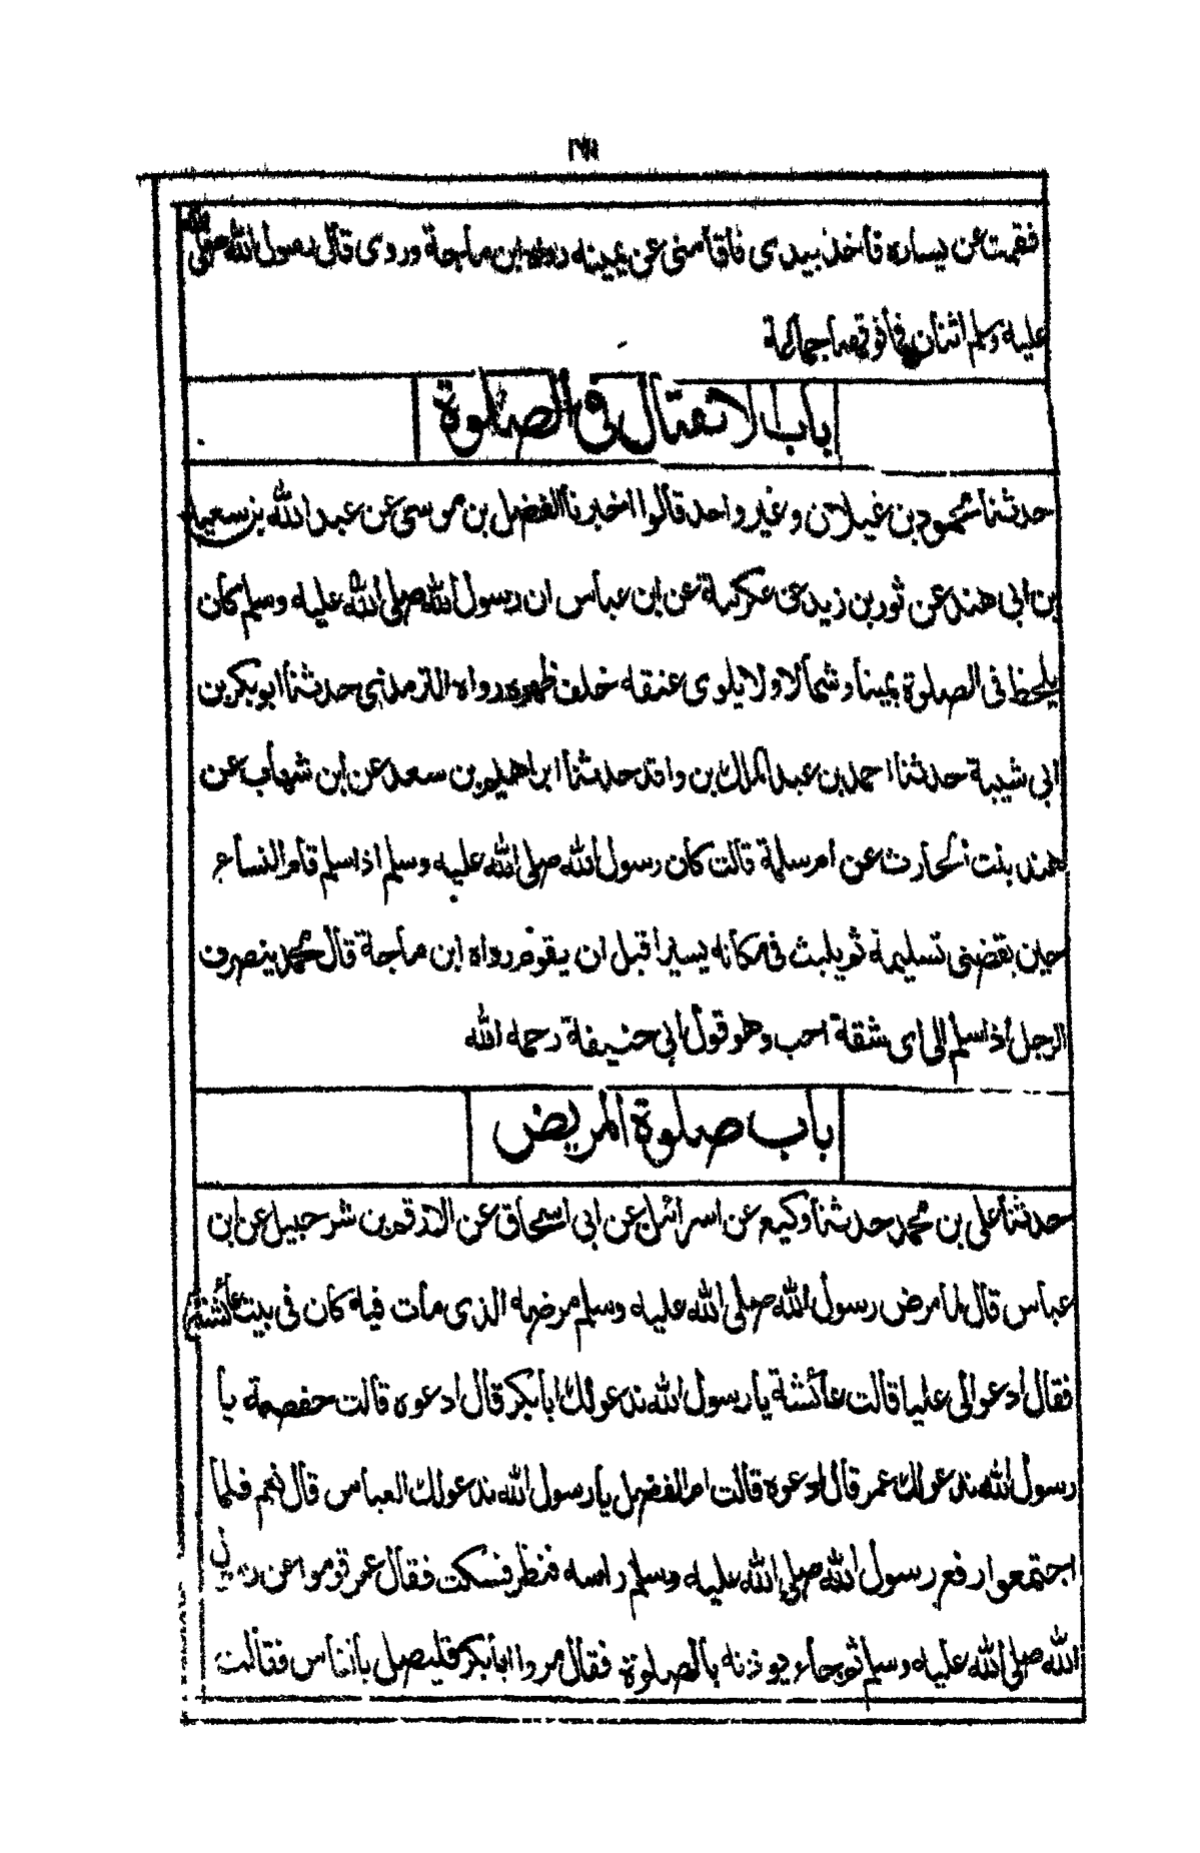 فقمت عن يساره فاخذ بيدى فاقامنى عن يمينه رواه ابن ماجة وروى قال رسول الله صلى الله
عليه وسلم اثنان فما فوقهما جماعة
باب الانفتال فى الصلوة
حدثنا محمود بن غيلان وغير واحد قالوا اخبرنا الفضل بن موسى عن عبد الله بن سعيد
بن ابى هند عن ثور بن زيد عن عكرمة عن ابن عباس ان رسول الله صلى الله عليه وسلم كان
يلحظ فى الصلوة يمينا وشمالا ولا يلوى عنقه خلف ظهره رواه الترمذى حدثنا ابوبكر بن
ابى شيبة حدثنا احمد بن عبد الملك بن واقد حدثنا ابراهيم بن سعد عن ابن شهاب عن
هند بنت الحارث عن ام سلمة قالت كان رسول الله صلى الله عليه وسلم اذا سلم قام النساء
حين يقضى تسليمه ثم يلبث فى مكانه يسيرا قبل ان يقوم رواه ابن ماجة قال محمد ينصرف
الرجل اذا سلم الى اى شقة احب وهو قول ابى حنيفة رحمه الله
باب صلوة المريض
حدثنا على بن محمد حدثنا وكيع عن اسرائيل عن ابى اسحاق عن الارقم بن شرحبيل عن ابن
عباس قال لما مرض رسول الله صلى الله عليه وسلم مرضه الذى مات فيه كان فى بيت عائشة
فقال ادعوا لى عليا قالت عائشة يا رسول الله ندعو لك ابا بكر قال ادعوه قالت حفصة يا
رسول الله ندعو لك عمر قال ادعوه قالت ام الفضل يا رسول الله ندعو لك العباس قال نعم فلما
اجتمعوا رفع رسول الله صلى الله عليه وسلم راسه فنظر فسكت فقال عمر قوموا عن رسول
الله صلى الله عليه وسلم ثم جاء يوذنه بالصلوة فقال مروا ابابكر فليصل بالناس فقالت